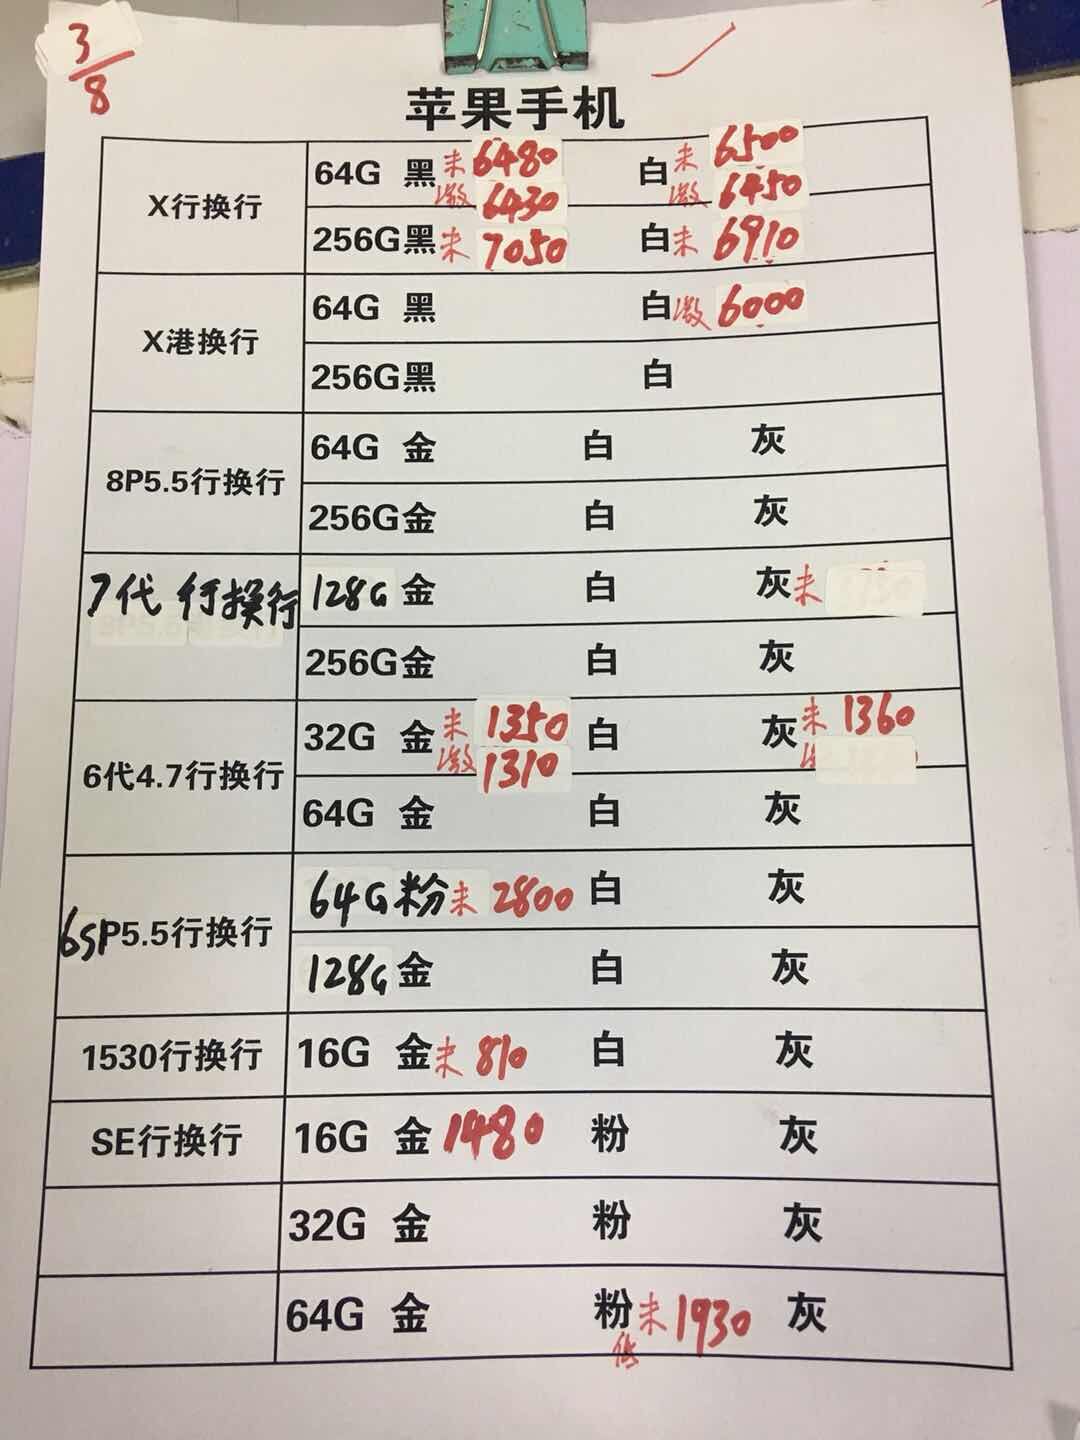 3/8
苹果手机
X行换行 64G 黑 未 6480 白 未 6500
激 6430 激 6450
256G 黑 未 7050 白 未 6910
X港换行 64G 黑 白 激 6000
256G 黑 白
8P5.5行换行 64G 金 白 灰
256G 金 白 灰
7代 行换行 128G 金 白 灰 未
256G 金 白 灰
6代4.7行换行 32G 金 未 1350 白 灰 未 1360
激 1310
64G 金 白 灰
6SP5.5行换行 64G 粉 未 2800 白 灰
128G 金 白 灰
1530行换行 16G 金 未 810 白 灰
SE行换行 16G 金 1480 粉 灰
32G 金 粉 灰
64G 金 粉 未 1930 灰